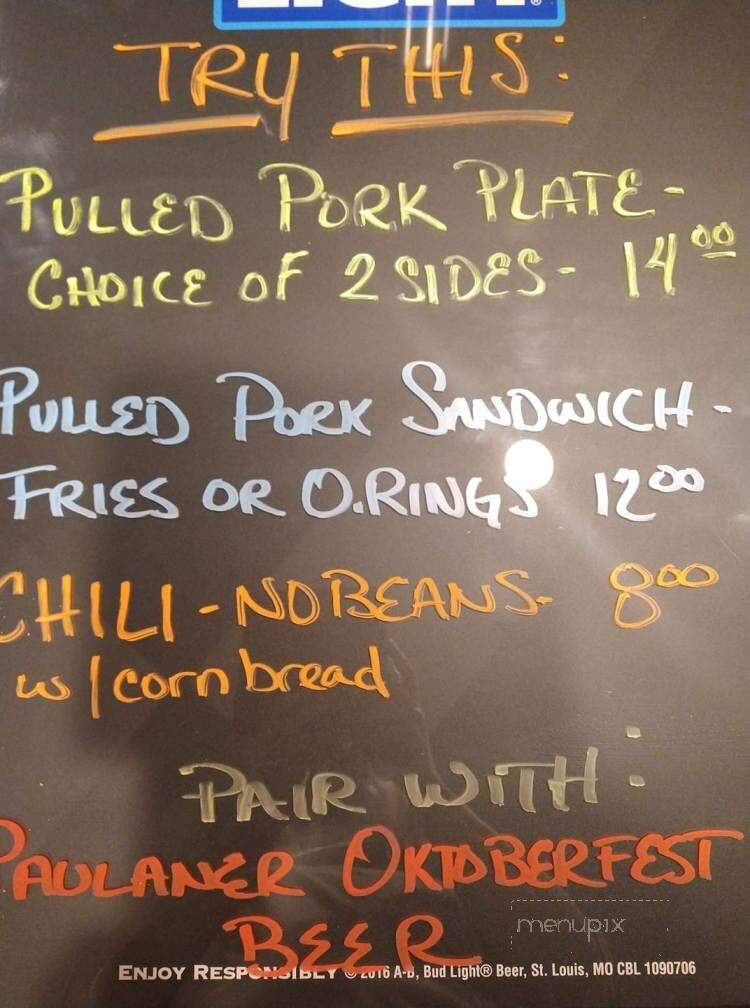 LIGHT®
TRY THIS:
PULLED PORK PLATE-
CHOICE OF 2 SIDES- 14 00
PULLED PORK SANDWICH-
FRIES OR O.RINGS 12 00
CHILI - NO BEANS- 8 00
w/ corn bread
PAIR WITH:
PAULANER OKTOBERFEST
BEER
menupix
ENJOY RESPONSIBLY © 2016 A-B, Bud Light® Beer, St. Louis, MO CBL 1090706